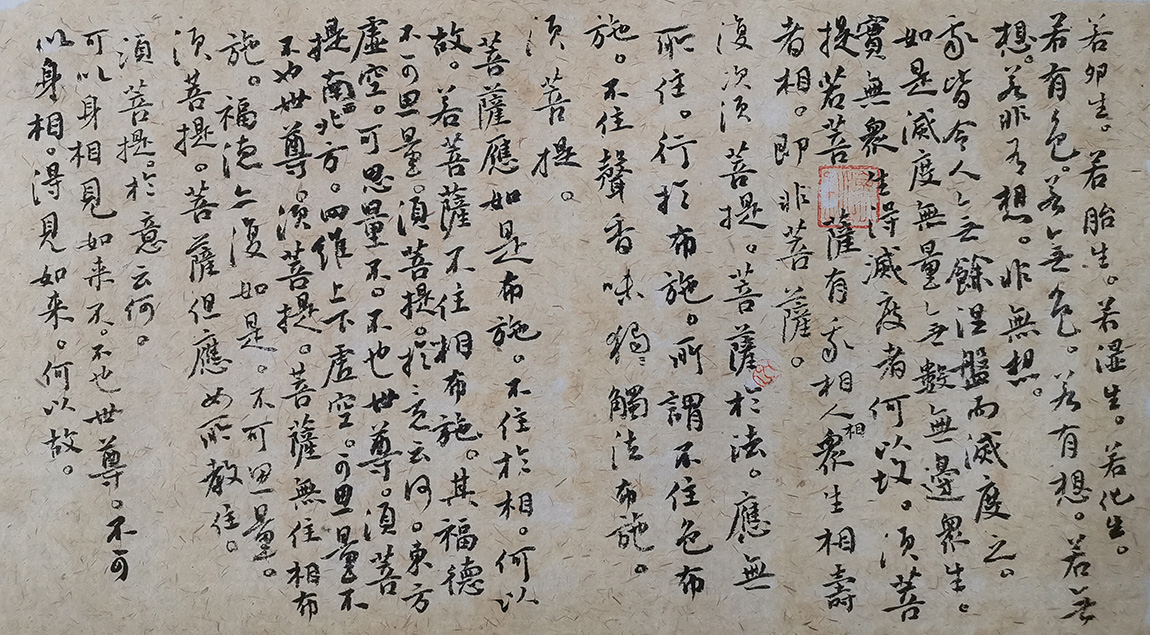 若卵生。若胎生。若湿生。若化生。
若有色。若无色。若有想。若无
想。若非有想。非無想。
我皆令入无餘涅盤而滅度之。
如是滅度無量无數無邊眾生。
實無眾生得滅度者何以故。须菩
提若菩薩有我相人相眾生相壽
者相。即非菩薩。
復次须菩提。菩薩於法。應無
所住。行於布施。所謂不住色布
施。不住聲香味觸法布施。
须菩提。
菩薩應如是布施。不住於相。何以
故。若菩薩不住相布施。其福德
不可思量。须菩提。於意云何。東方
虛空。可思量不。不也世尊。须菩
提南西北方。四維上下虛空。可思量不
不也世尊。须菩提。菩薩無住相布
施。福德亦復如是。不可思量。
须菩提。菩薩但應如所教住。
须菩提。於意云何。
可以身相見如来不。不也世尊。不可
以身相。得見如来。何以故。